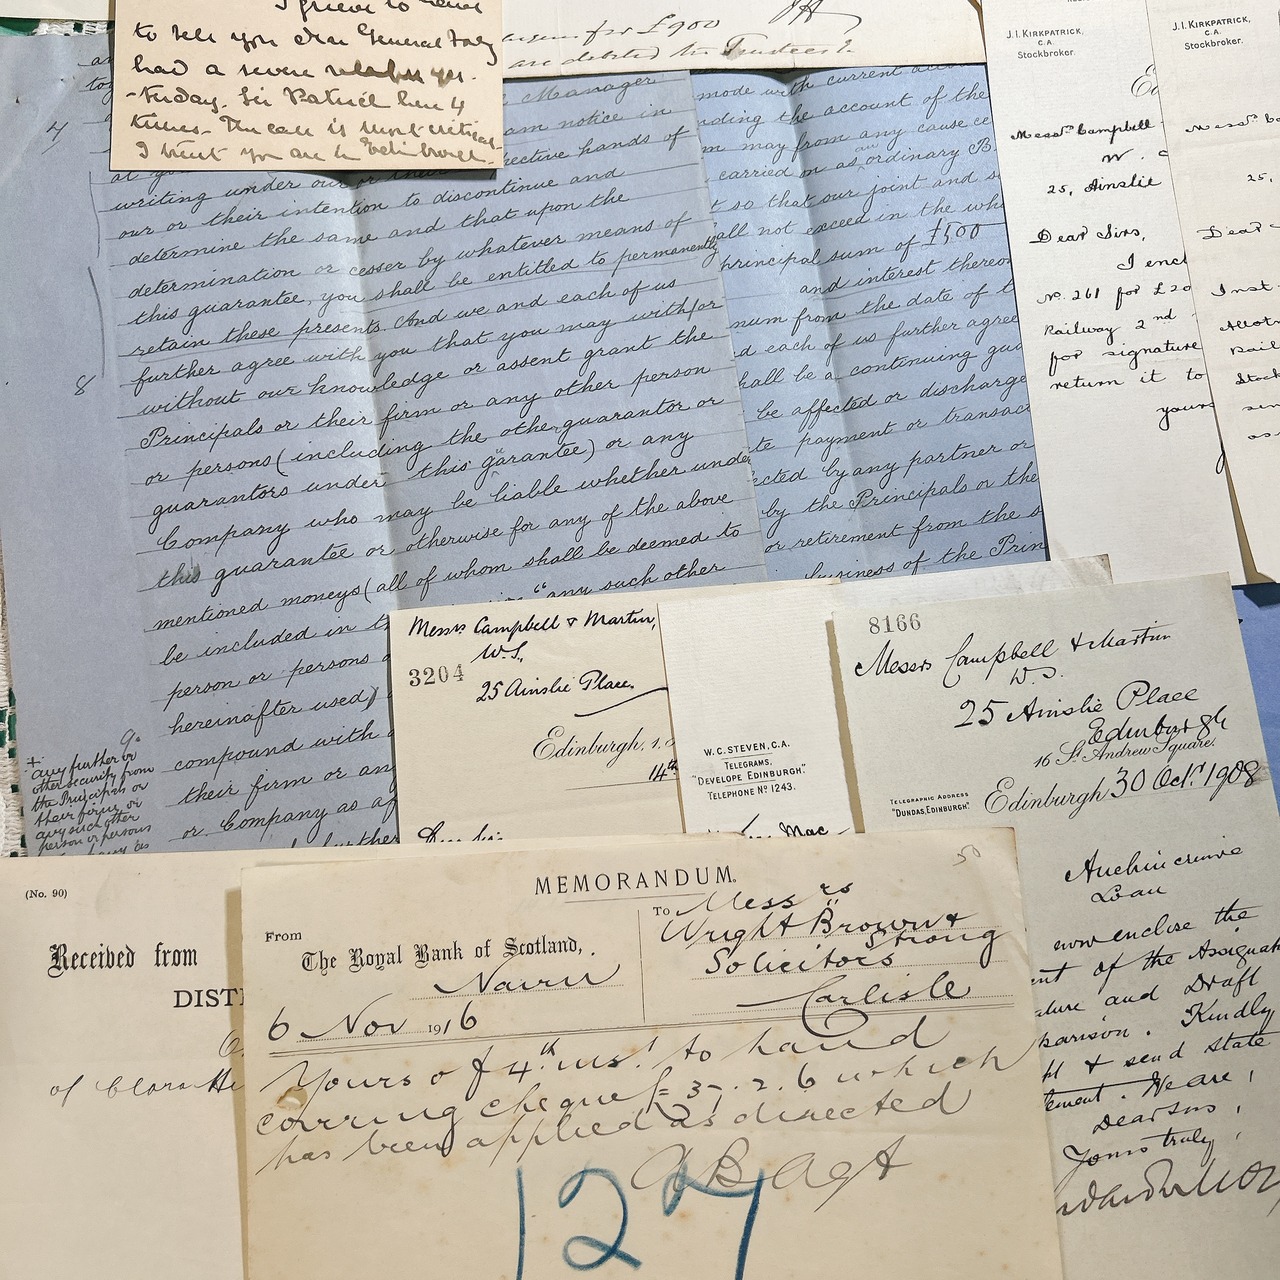 to tell you dear General
had a severe relapse yes-
-terday. Sir Patrick here 4
times. The case is most critical
I trust you are in Edinburgh.
for £900
are debited to Trustees
J. I. KIRKPATRICK,
C.A.
Stockbroker.
Messrs Campbell
W.
25, Ainslie
Dear Sirs,
I encl
No. 261 for £20
Railway 2nd
for signature
return it to
yours
J. I. KIRKPATRICK,
C.A.
Stockbroker.
25,
Dear
7
Manager
am notice in
writing under our or their respective hands of
our or their intention to discontinue and
determine the same and that upon the
determination or cesser by whatever means of
this guarantee, you shall be entitled to permanently
retain these presents. And we and each of us
further agree with you that you may with/or
without our knowledge or assent grant the
8
Principals or their firm or any other person
or persons (including the other guarantor or
guarantors under this guarantee) or any
Company who may be liable whether under
this guarantee or otherwise for any of the above
mentioned moneys (all of whom shall be deemed to
be included in "any such other
person or persons
hereinafter used)
9.
compound with
their firm or any
or Company as af
further
+
any further or
other security from
the Principals or
their firm or
any such other
person or persons
mode with current
nding the account of the
may from any cause ce
carried on as an ordinary B
t so that our joint and s
all not exceed in the wh
principal sum of £500
and interest thereon
num from the date of t
d each of us further agree
hall be a continuing gua
be affected or discharge
te payment or transac
ected by any partner or
by the Principals or the
or retirement from the s
business of the Prin
Messrs Campbell & Martin,
W.S.,
3204
25 Ainslie Place.
Edinburgh,
14th
W. C. STEVEN, C.A.
TELEGRAMS,
"DEVELOPE EDINBURGH."
TELEPHONE No 1243.
8166
Messrs Campbell & Martin
W.S.
25 Ainslie Place
Edinburgh
16 St. Andrew Square.
TELEGRAPHIC ADDRESS
"DUNDAS, EDINBURGH."
Edinburgh 30 Oct. 1908
Auchincruive
Loan
now enclose the
ent of the Assignat
ature and Draft
parison. Kindly
& send state
ement. We are,
Dear Sirs,
Yours truly,
(No. 90)
Received from
DIST
of Clara
50
MEMORANDUM.
From
The Royal Bank of Scotland,
Nairn
6 Nov 1916
To Messrs
Wright Brown &
Strong
Solicitors
Carlisle
Yours of 4th inst to hand
covering cheque £37.2.6 which
has been applied as directed
127